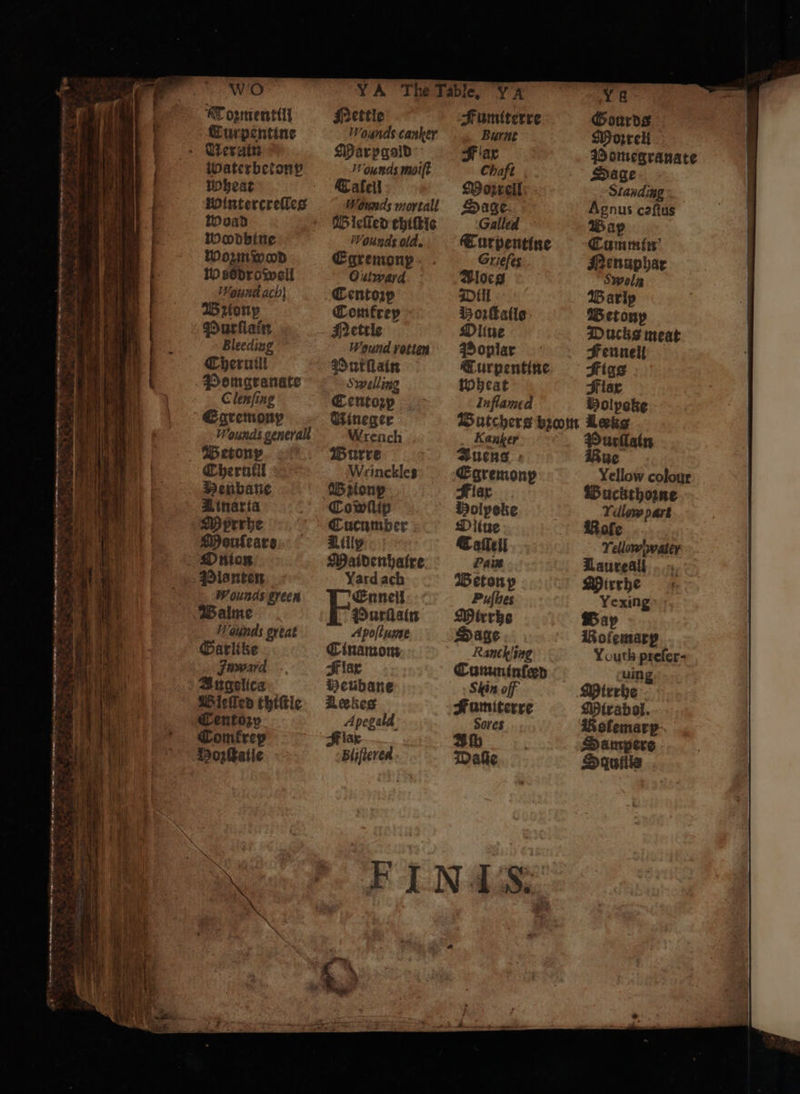 WO
YA The Table, YA
YE
Tormentill
Turpentine
Veruin
Waterbetony
Wheat
Wintercresses
Woad
Woodbine
Wormwood
Woodrowell
Wound ach
Briony
Purslain
Bleeding
Cheruill
Pomgranate
Clensing
Egremony
Wounds generall
Betony
Cheruill
Henbane
Linaria
Myrrhe
Mouseare
Onion
Planten
Wounds green
Balme
Wounds great
Garlike
Inward
Angelica
Blessed thistle
Centory
Comfrey
Horstaile
Nettle
Wounds canker
Marygold
Wounds moist
Tasell
Wounds mortall
Blessed thistle
Wounds old.
Egremony
Outward
Centory
Comfrey
Nettle
Wound rotten
Purslain
Swelling
Centory
Vineger
Wrench
Burre
Wrinckles
Briony
Cowslip
Cucumber
Lilly
Maidenhaire
Yard ach
FEnnell
Purslain
Apostume
Cinamom
Flax
Henbane
Leekes
Apegald
Flax
Blistered
Fumiterre
Burnt
Flax
Chaft
Morrell
Sage
Galled
Turpentine
Griefes
Aloes
Dill
Horstaile
Oliue
Poplar
Turpentine
Wheat
Inflamed
Butchers broom
Kanker
Auens
Egremony
Flax
Holyoke
Oliue
Tassell
Pain
Betony
Pushes
Mirrhe
Sage
Ranckling
Cumminseed
Skin off
Fumiterre
Sores
Ash
Dasie
Gourds
Morrell
Pomegranate
Sage
Standing
Agnus castus
Bay
Cummin
Nenuphar
Swoln
Barly
Betony
Ducks meat
Fennell
Figs
Flax
Holyoke
Leeks
Purslain
Rue
Yellow colour
Buckthorne
Yellow part
Rose
Yellow water
Laureall
Mirrhe
Yexing
Bay
Rosemary
Youth preser-
uing
Mirrhe
Mirabol.
Rosemary
Sampere
Squills
FINIS.